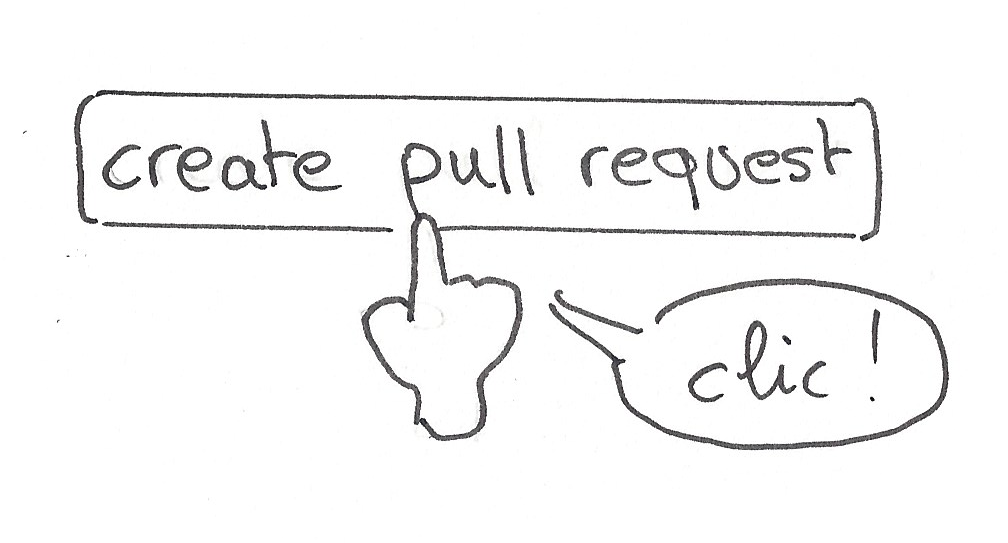 create pull request
clic !